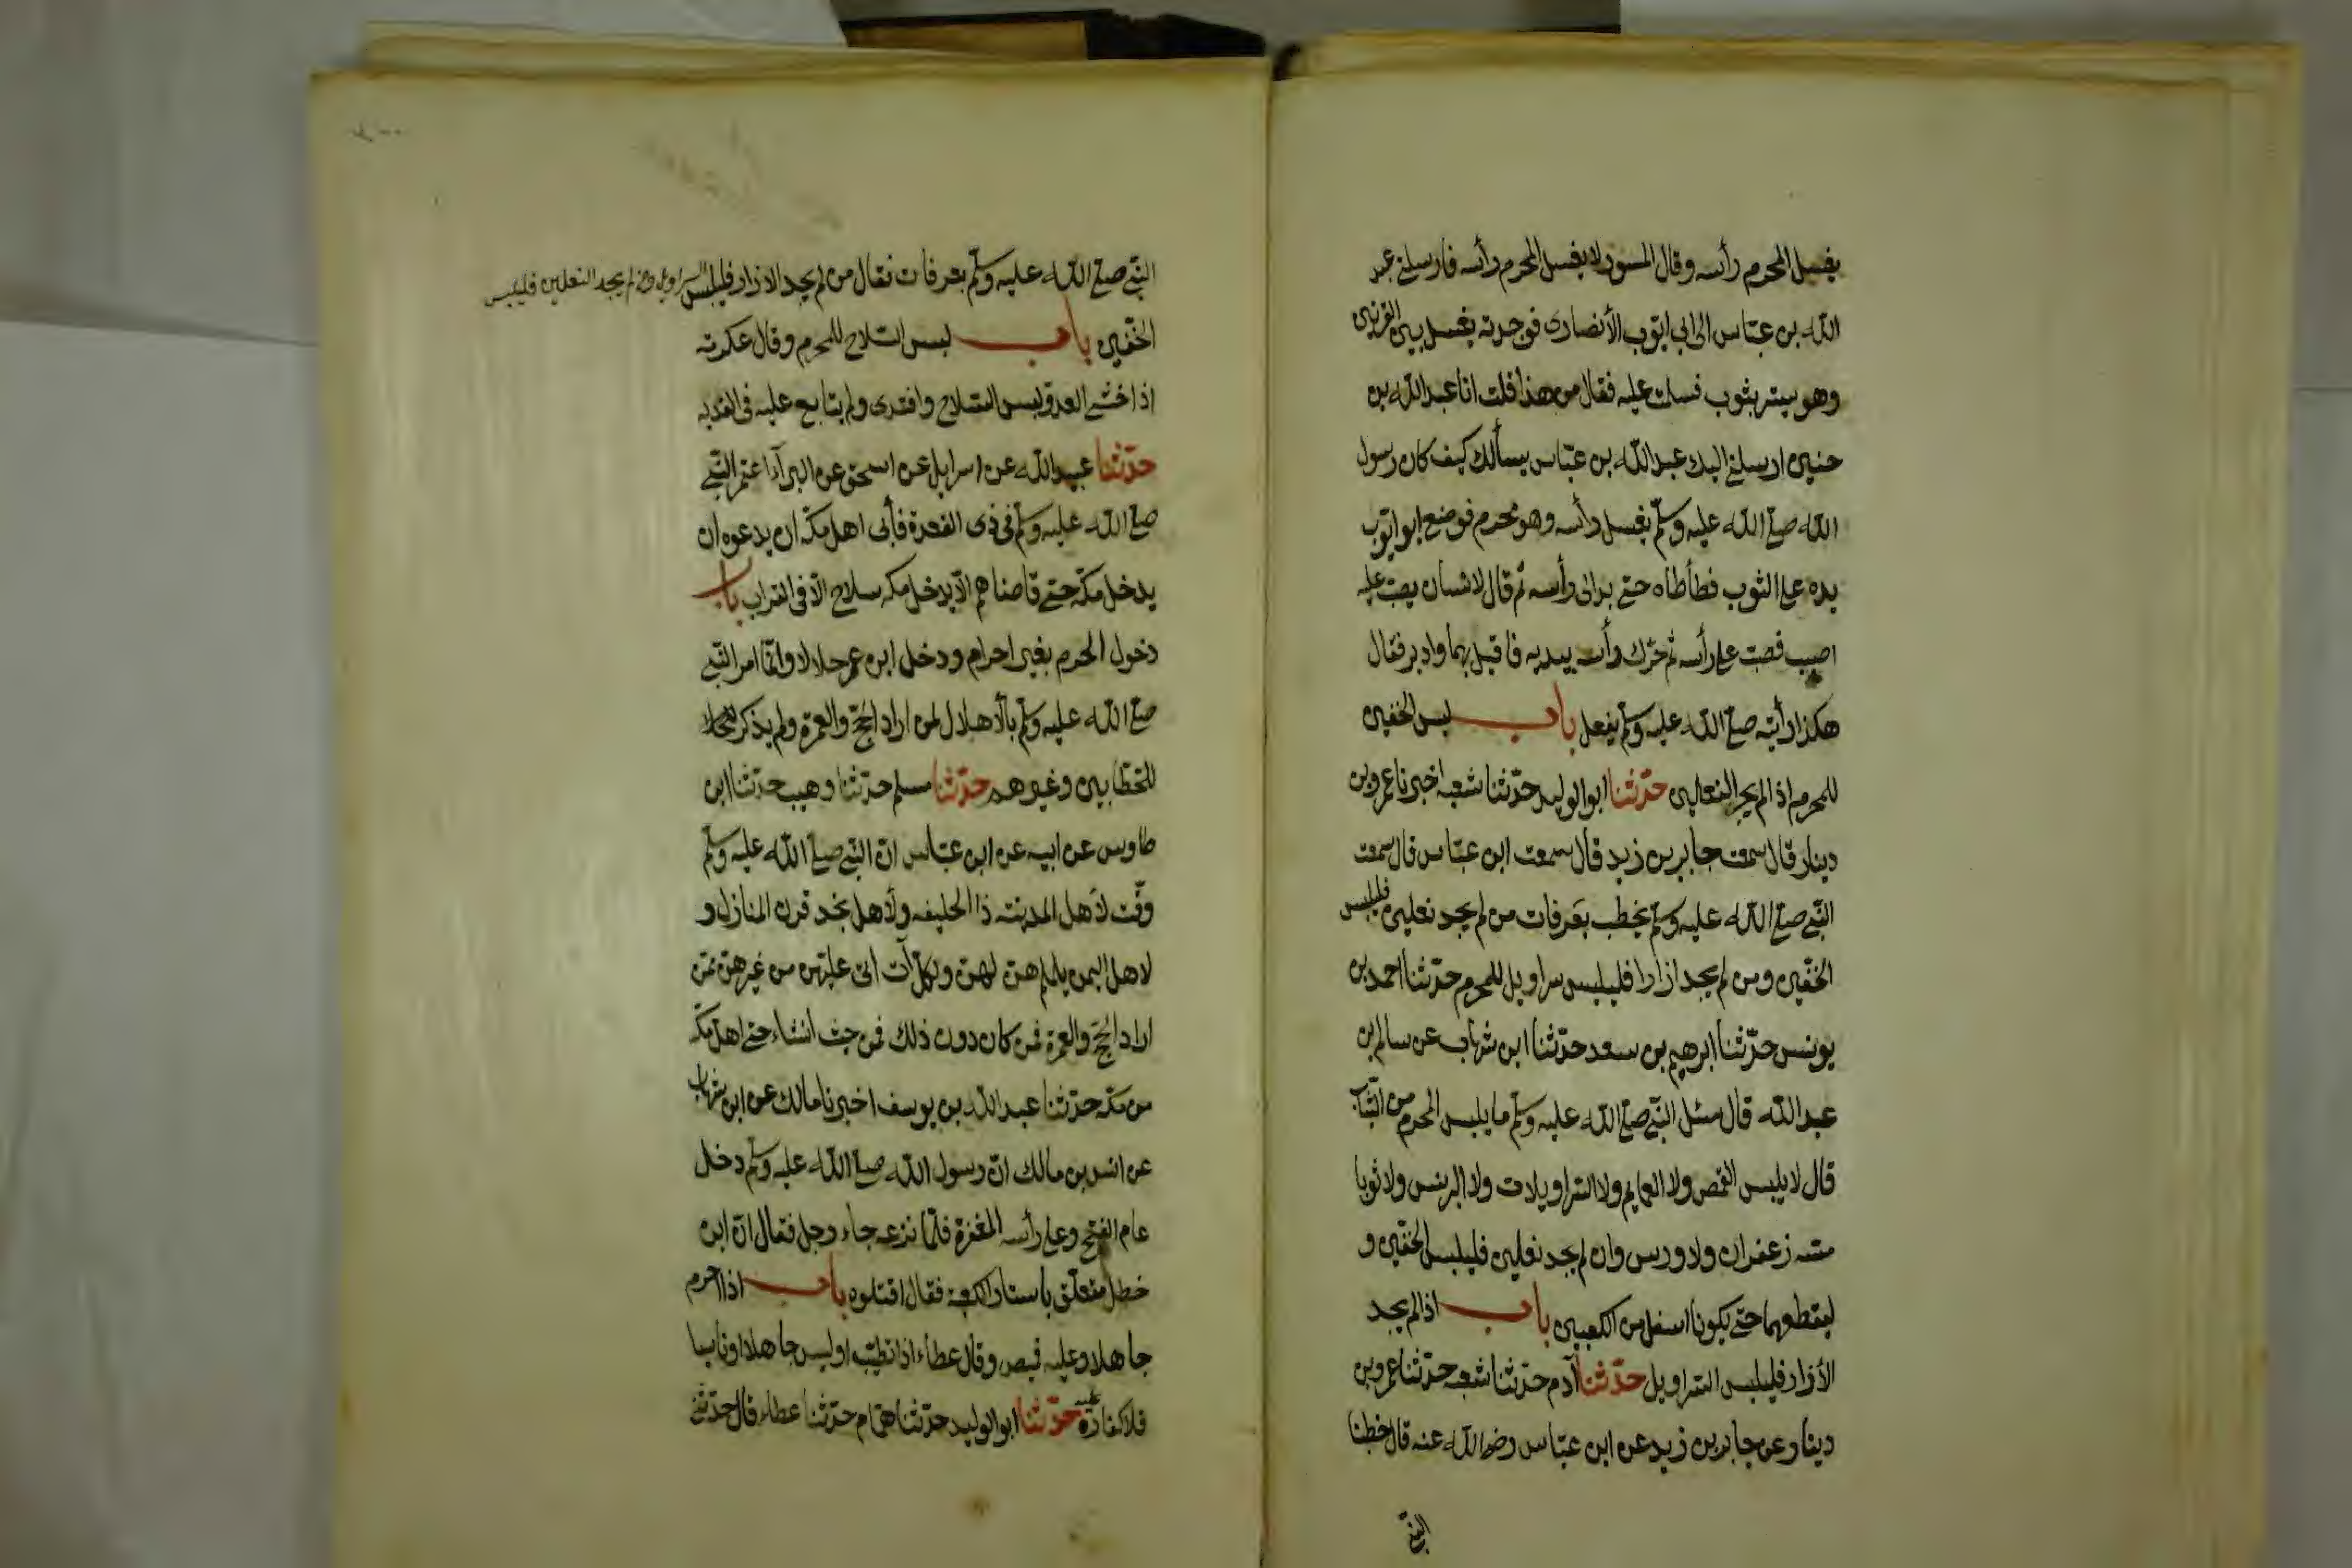 يغسل المحرم رأسه وقال المسور لا يغسل المحرم رأسه فارسلنى عبد
الله بن عبّاس الى ابى ايّوب الأنصارى فوجدته يغسل بين القرنين
وهو يستر بثوب فسلمت عليه فقال من هذا قلت انا عبد الله بن
حنين ارسلنى اليك عبد الله بن عبّاس يسألك كيف كان رسول
الله صلى الله عليه وسلّم يغسل رأسه وهو محرم فوضع ابو ايّوب
يده على الثوب فطأطاه حتى بدا لى رأسه ثم قال لانسان يصبّ عليه
اصبب فصبّ على رأسه ثم حرّك رأسه بيديه فاقبل بهما وادبر فقال
هكذا رأيته صلى الله عليه وسلّم يفعل باب لبس الخفين
للمحرم اذا لم يجد النعلين حدّثنا ابو الوليد حدّثنا شعبه اخبرنا عمرو بن
دينار قال سمعت جابر بن زيد قال سمعت ابن عبّاس قال سمعت
النّبى صلى الله عليه وسلّم يخطب بعرفات من لم يجد نعلين فليلبس
الخفّين ومن لم يجد ازارا فليلبس سراويل للمحرم حدّثنا احمد بن
يونس حدّثنا ابرهيم بن سعد حدّثنا ابن شهاب عن سالم بن
عبد الله قال سئل النّبى صلى الله عليه وسلّم ما يلبس المحرم من الثياب
قال لا يلبس القمص ولا العمايم ولا السّراويلات ولا البرنس ولا ثوبا
مسّه زعفران ولا ورس وان لم يجد نعلين فليلبس الخفّين و
ليقطعهما حتى يكونا اسفل من الكعبين باب اذا لم يجد
الأزار فليلبس السّراويل حدّثنا آدم حدّثنا شعبه حدّثنا عمرو بن
دينار عن جابر بن زيد عن ابن عبّاس رضى الله عنه قال خطبنا
النّبى
النّبى صلى الله عليه وسلّم بعرفات فقال من لم يجد الازار فليلبس السراويل ومن لم يجد النعلين فليلبس
الخفّين باب لبس السّلاح للمحرم وقال عكرمه
اذا خشى العدوّ لبس السّلاح وافتدى ولم يتابع عليه فى الفديه
حدّثنا عبيد الله عن اسرايل عن اسحق عن البرآء اعتمر النّبى
صلى الله عليه وسلّم فى ذى القعدة فأبى اهل مكّه ان يدعوه ان
يدخل مكّه حتى قاضاهم الّا يدخل مكه سلاح الّا فى القراب باب
دخول الحرم بغير احرام ودخل ابن عمر حلالا وانّما امر النّبى
صلى الله عليه وسلّم بالأهلال لمن اراد الحجّ والعمرة ولم يذكر
للحطّابين وغيرهم حدّثنا مسلم حدّثنا وهيب حدّثنا ابن
طاوس عن ابيه عن ابن عبّاس انّ النّبى صلى الله عليه وسلّم
وقّت لأهل المدينه ذا الحليفه ولأهل نجد قرن المنازل و
لاهل اليمن يلملم هنّ لهنّ ولكلّ آت اتى عليهن من غيرهنّ ممّن
اراد الحجّ والعمرة فمن كان دون ذلك فمن حيث انشاء حتى اهل مكّه
من مكّه حدّثنا عبد الله بن يوسف اخبرنا مالك عن ابن شهاب
عن انس بن مالك انّ رسول الله صلى الله عليه وسلّم دخل
عام الفتح وعلى رأسه المغفرة فلمّا نزعه جاء رجل فقال انّ ابن
خطل متعلّق باستار الكعبه فقال اقتلوه باب اذا احرم
جاهلا وعليه قميص وقال عطاء اذا تطيّب او لبس جاهلا او ناسيا
فلا كفارة عليه حدّثنا ابو الوليد حدّثنا همّام حدّثنا عطاء قال حدّثنى